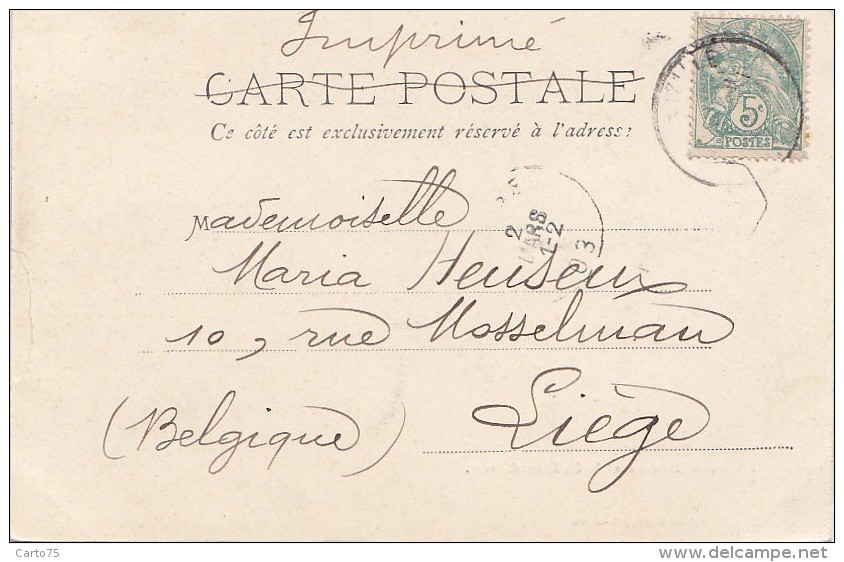 Imprimé
CARTE POSTALE
Ce côté est exclusivement réservé à l'adresse
5c
POSTES
Mademoiselle
2
MARS
1-2
03
Maria Henseux
10, rue Mosselman
Liège
(Belgique)
Carto75
delcampe.net